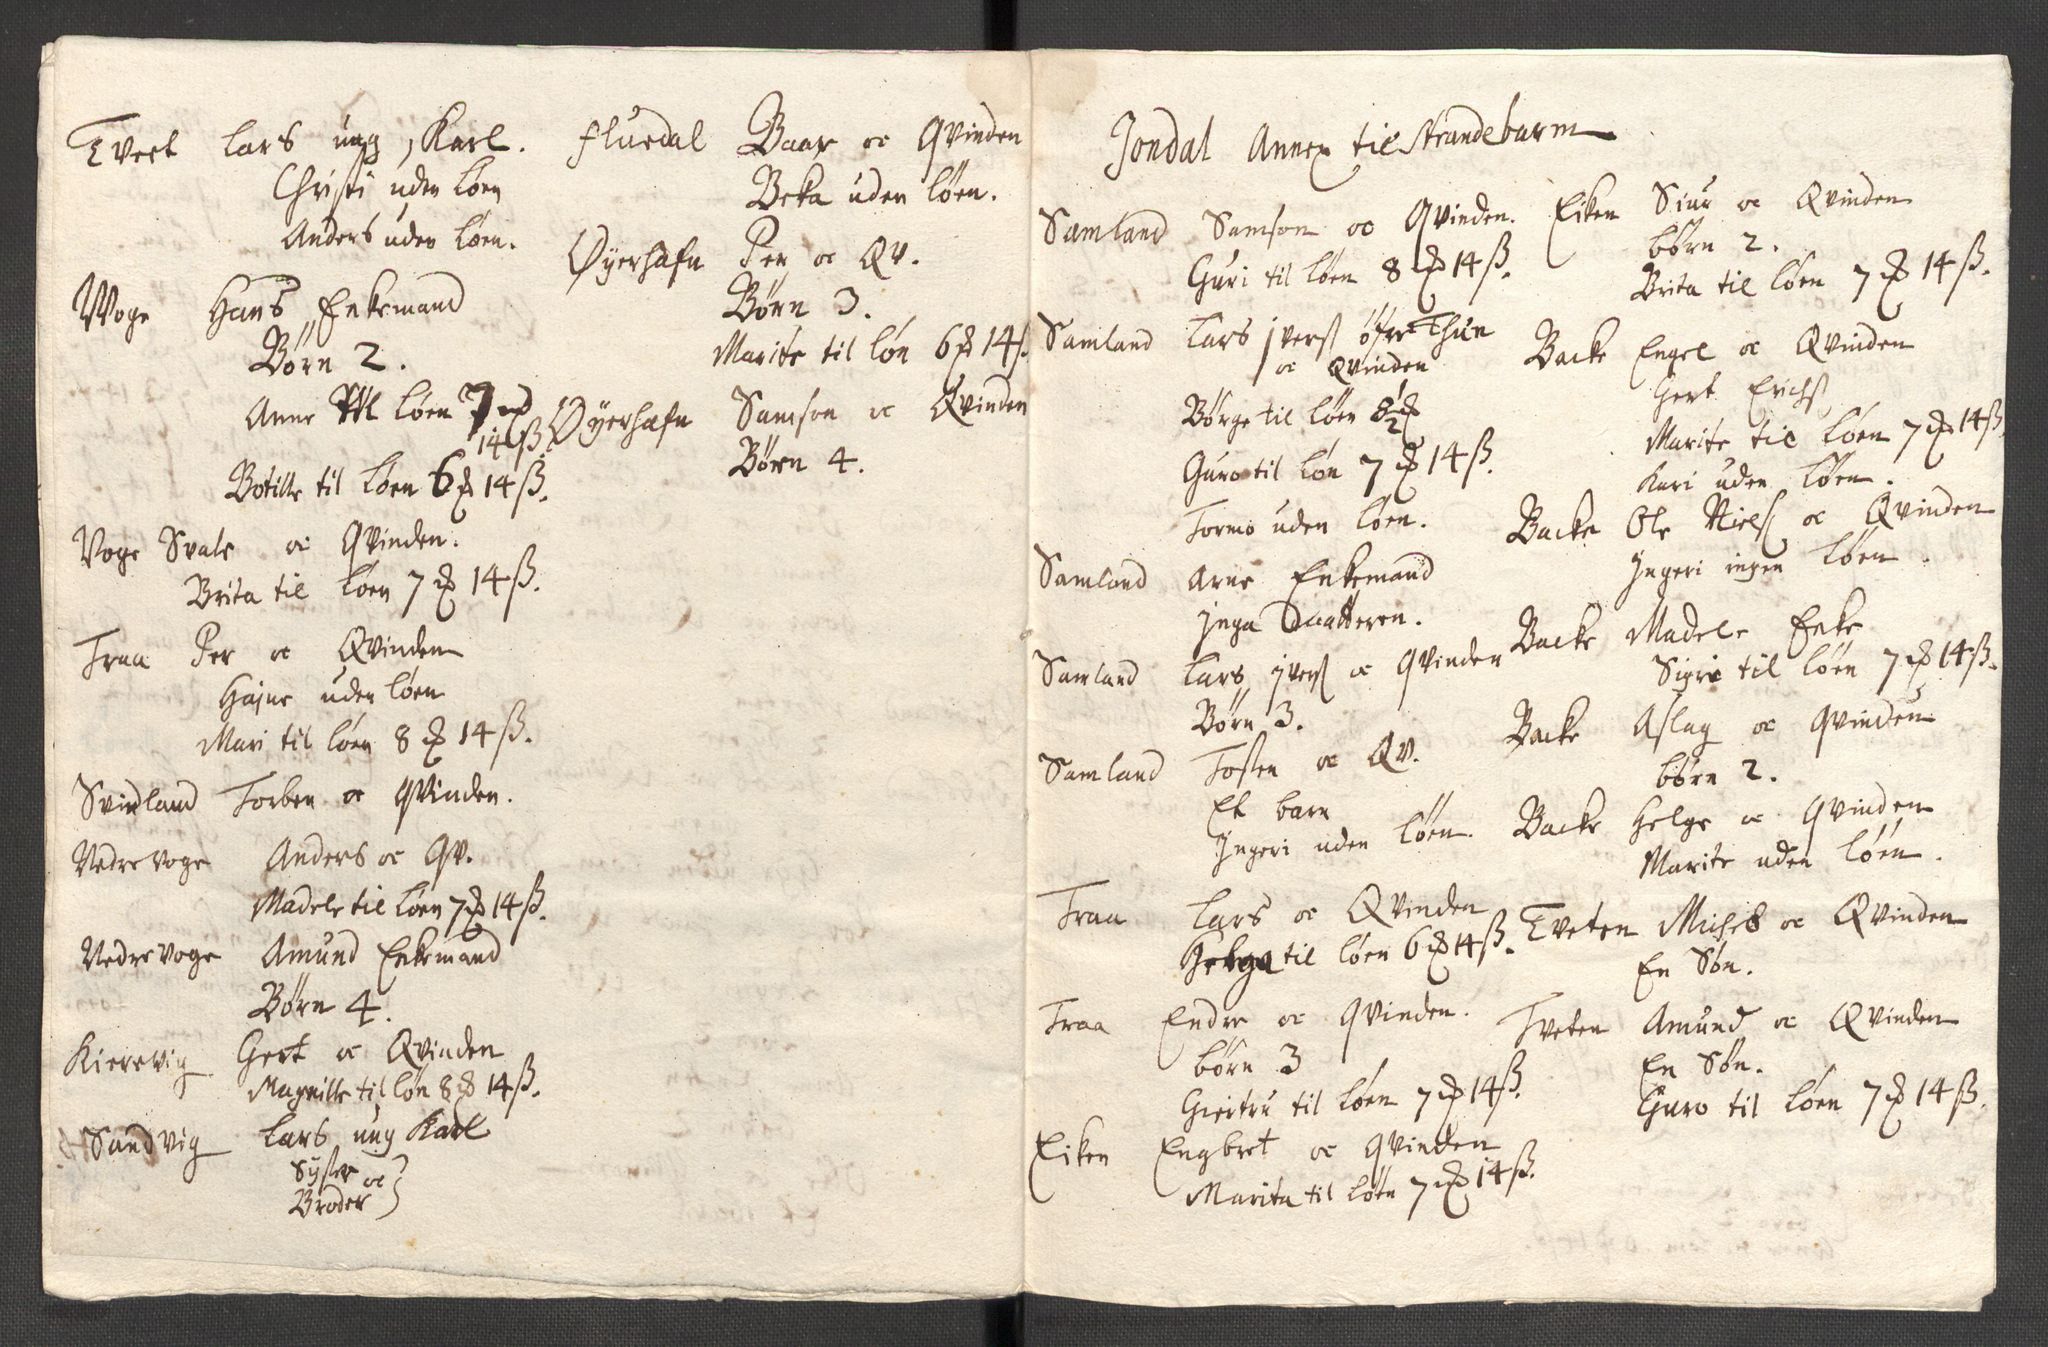 Tveet Lars ung Karl.
Christi uden løen
Anders uden løen.
Woge Hans Enkemand
Børn 2.
Anne til løen 7 ₰
14 ß.
Botille til løen 6 ₰ 14 ß.
Voge Svale oc Qvinden.
Brita til løen 7 ₰ 14 ß.
Traa Per oc Qvinden
Hajne uden løen
Mari til løen 8 ₰ 14 ß.
Svinland Torben oc Qvinden.
Nedre voge Anders oc Qv.
Madele til løen 7 ₰ 14 ß.
Nedre voge Amund Enkemand
Børn 4.
Kierevig Gert oc Qvinden
Magnille til løn 8 ₰ 14 ß.
Sandvig Lars ung Karl
Syster oc
Broder
fluedal Baar oc Qvinden
Beka uden løen.
Øyerhafn Per oc Qv.
Børn 3.
Marite til løn 6 ₰ 14 ß.
Øyerhafn Samson oc Qvinden
Børn 4.
Jondal Annex til Strandebarm
Samland Samson oc Qvinden.
Guri til løen 8 ₰ 14 ß.
Samland Lars Iverß øfre Thun
oc Qvinden
Børge til løen
Guro til løn 7 ₰ 14 ß.
Tormo uden løen.
Samland Arne Enkemand
Inga Daatteren.
Samland Lars Iverß oc Qvinden
Børn 3.
Samland Tosten oc Qv.
Et barn
Ingeri uden løen.
Traa Lars oc Qvinden
Helga til løen 6 ₰ 14 ß.
Traa Endre oc Qvinden.
børn 3
Giertru til løen 7 ₰ 14 ß.
Eiken Engbret oc Qvinden
Marita til løen 7 ₰ 14 ß.
Eiken Siur oc Qvinden
børn 2.
Brita til løen 7 ₰ 14 ß.
Backe Engel oc Qvinden
Gert Erichß
Marite til løen 7 ₰ 14 ß.
Kari uden løen.
Backe Ole Nielß oc Qvinden
Ingeri ingen løen.
Backe Madele Enke
Sigri til løen 7 ₰ 14 ß.
Backe Aslag oc Qvinden
børn 2.
Backe Helge oc Qvinden
Marite uden løen.
Tveten Michel oc Qvinden
En Søn.
Tveten Amund oc Qvinden
En Søn.
Guro til løen 7 ₰ 14 ß.